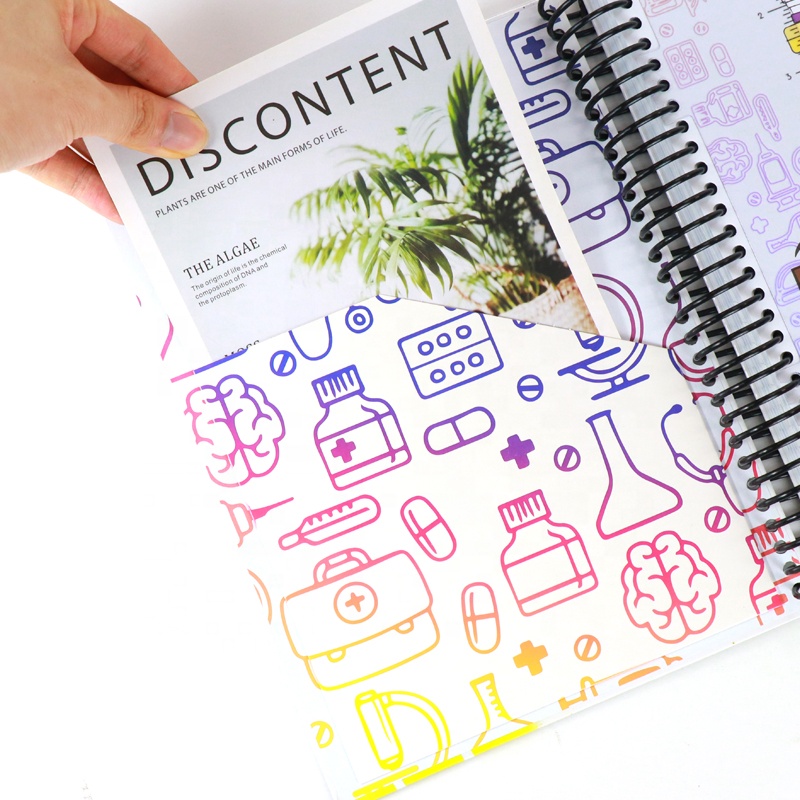 DISCONTENT
PLANTS ARE ONE OF THE MAIN FORMS OF LIFE.
THE ALGAE
The origin of life is the chemical
composition of DNA and
the protoplasm.
MOSS
2
3